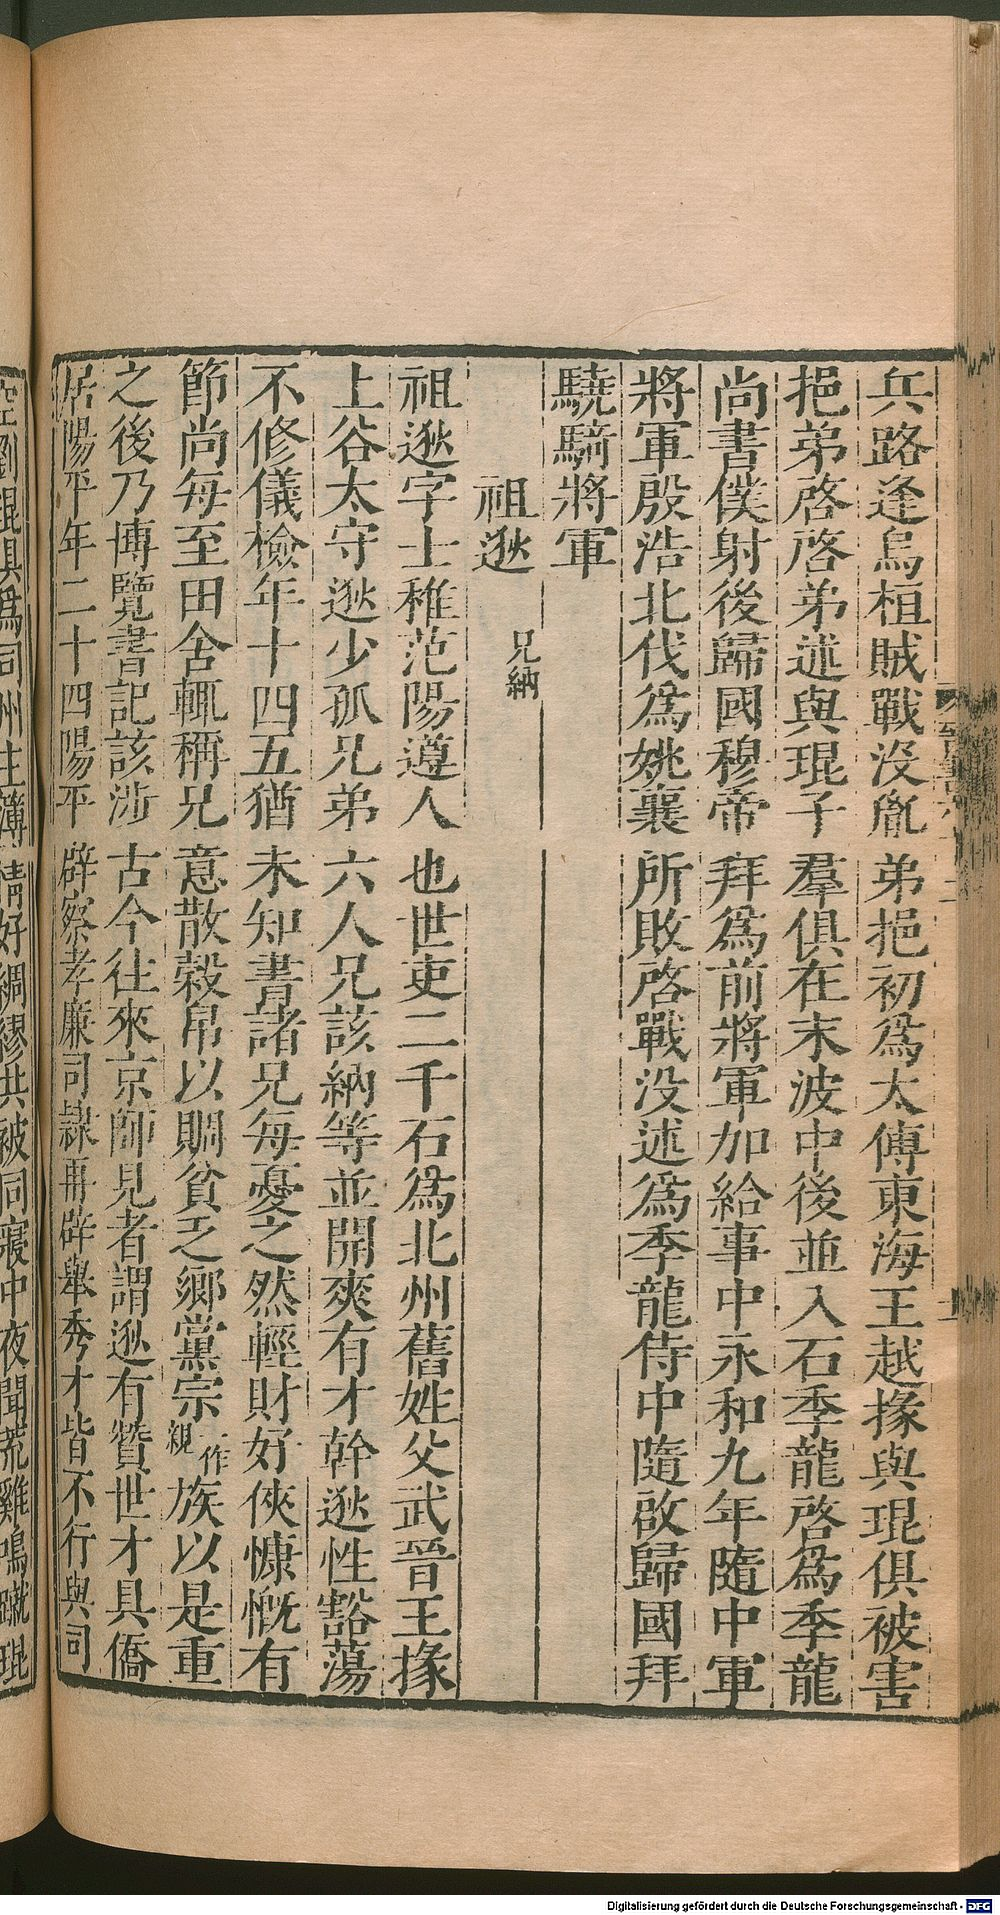 兵路逢烏桓賊戰没胤弟挹初爲太傅東海王越掾與琨俱被害
挹弟啓啓弟述與琨子羣俱在末波中後並入石季龍啓爲季龍
尚書僕射後歸國穆帝拜爲前將軍加給事中永和九年隨中軍
將軍殷浩北伐爲姚襄所敗啓戰没述爲季龍侍中隨啟歸國拜
驍騎將軍
祖逖 兄納
祖逖字士稚范陽遵人也世吏二千石爲北州舊姓父武晉王掾
上谷太守逖少孤兄弟六人兄該納等並開爽有才幹逖性豁蕩
不修儀檢年十四五猶未知書諸兄每憂之然輕財好俠慷慨有
節尚每至田舍輒稱兄意散穀帛以賙貧乏鄉黨宗一作親族以是重
之後乃博覽書記該涉古今往來京師見者謂逖有贊世才具僑
居陽平年二十四陽平辟察孝廉司隸再辟舉秀才皆不行與司
空劉琨俱爲司州主簿情好綢繆共被同寢中夜聞荒雞鳴蹴琨
Digitalisierung gefördert durch die Deutsche Forschungsgemeinschaft - DFG